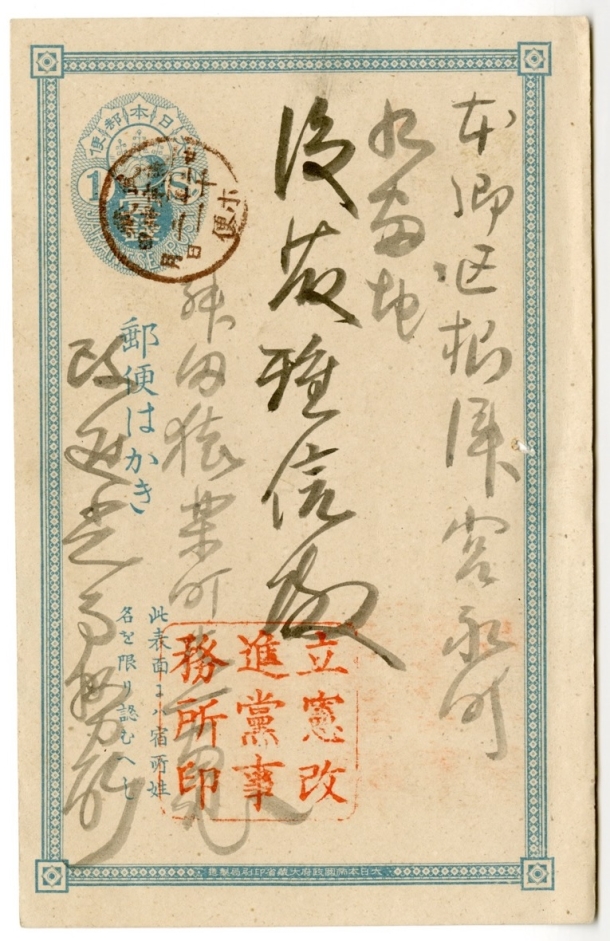 本郷区根津宮永町
九番地
後藤雅信殿
神田猿楽町
改進党事務所
日本郵便
1 S
郵便はかき
此表面ニハ宿所姓
名を限り認むへし
立憲改
進黨事
務所印
大日本帝國政府大藏省印刷局製造